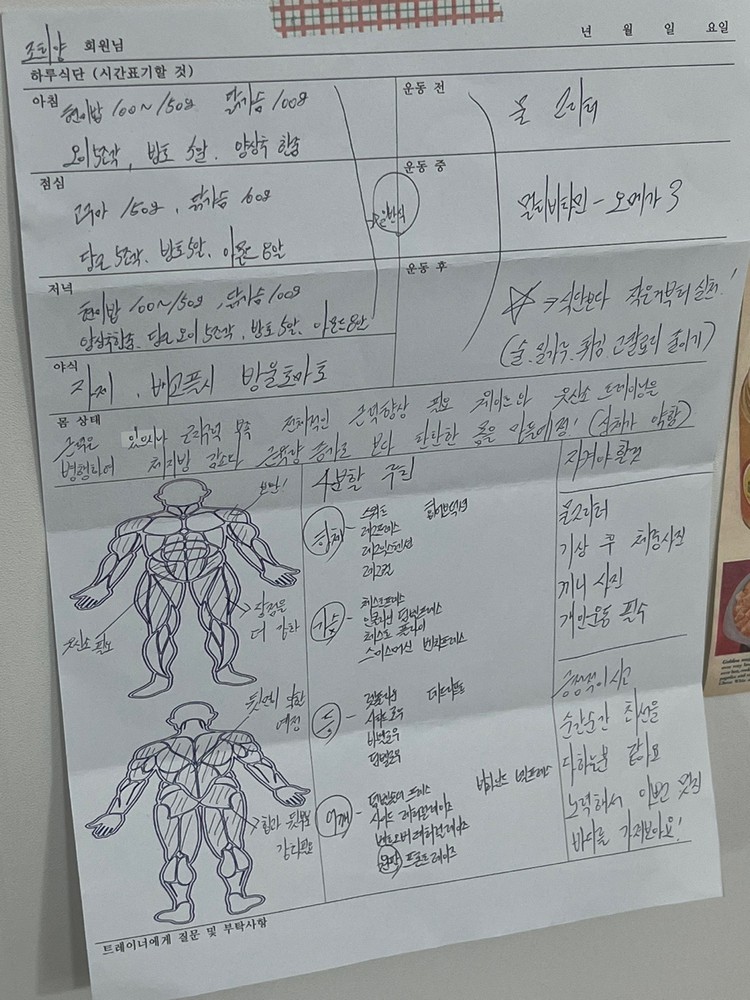 조희양 회원님
년 월 일 요일
하루식단 (시간표기할 것)
아침
현미밥 100~150g 닭가슴 100g
오이 5조각, 방토 5알, 양상추 한줌
점심
고구마 150g, 닭가슴 100g
당근 5조각, 방토 5알, 아몬드 8알
저녁
현미밥 100~150g, 닭가슴 100g
양상추한줌, 당근 오이 5조각, 방토 5알, 아몬드 8알
야식
자제, 배고플시 방울토마토
일반식
운동 전
물 2리터
운동 중
멀티비타민 - 오메가 3
운동 후
☆ ⇒ 식단보다 작은거부터 실천!
(술, 밀가루, 튀김, 고칼로리 줄이기)
몸 상태
근육은 있으나 근력 부족 전체적인 근력향상 필요 웨이트와 유산소 트레이닝을
병행하여 체지방 감소와 근육량 증가로 보다 탄탄한 몸을 만들예정! (상체가 약함)
장점을
더 강화
유산소 필요
뒷면이 약한
예정
힙과 뒷벅지
강화필요
4분할 루틴
하체 - 스쿼트
레그프레스
레그익스텐션
레그컬
가슴 - 체스트프레스
인클라인 덤벨프레스
체스트 플라이
스미스머신 벤치프레스
등 - 렛풀다운 데드리프트
시티드 로우
바벨로우
덤벨로우
어깨 - 덤벨숄더 프레스 비하인드 넥프레스
사이드 레터럴레이즈
벤트오버 레터럴레이즈
프론트레이즈
지켜야 할것
물2리터
기상 후 체중사진
끼니 사진
개인운동 필수
긍정적이 사고
순간순간 최선을
다하는분 같아요
노력해서 이번 멋진
바디를 가져보아요!
트레이너에게 질문 및 부탁사항